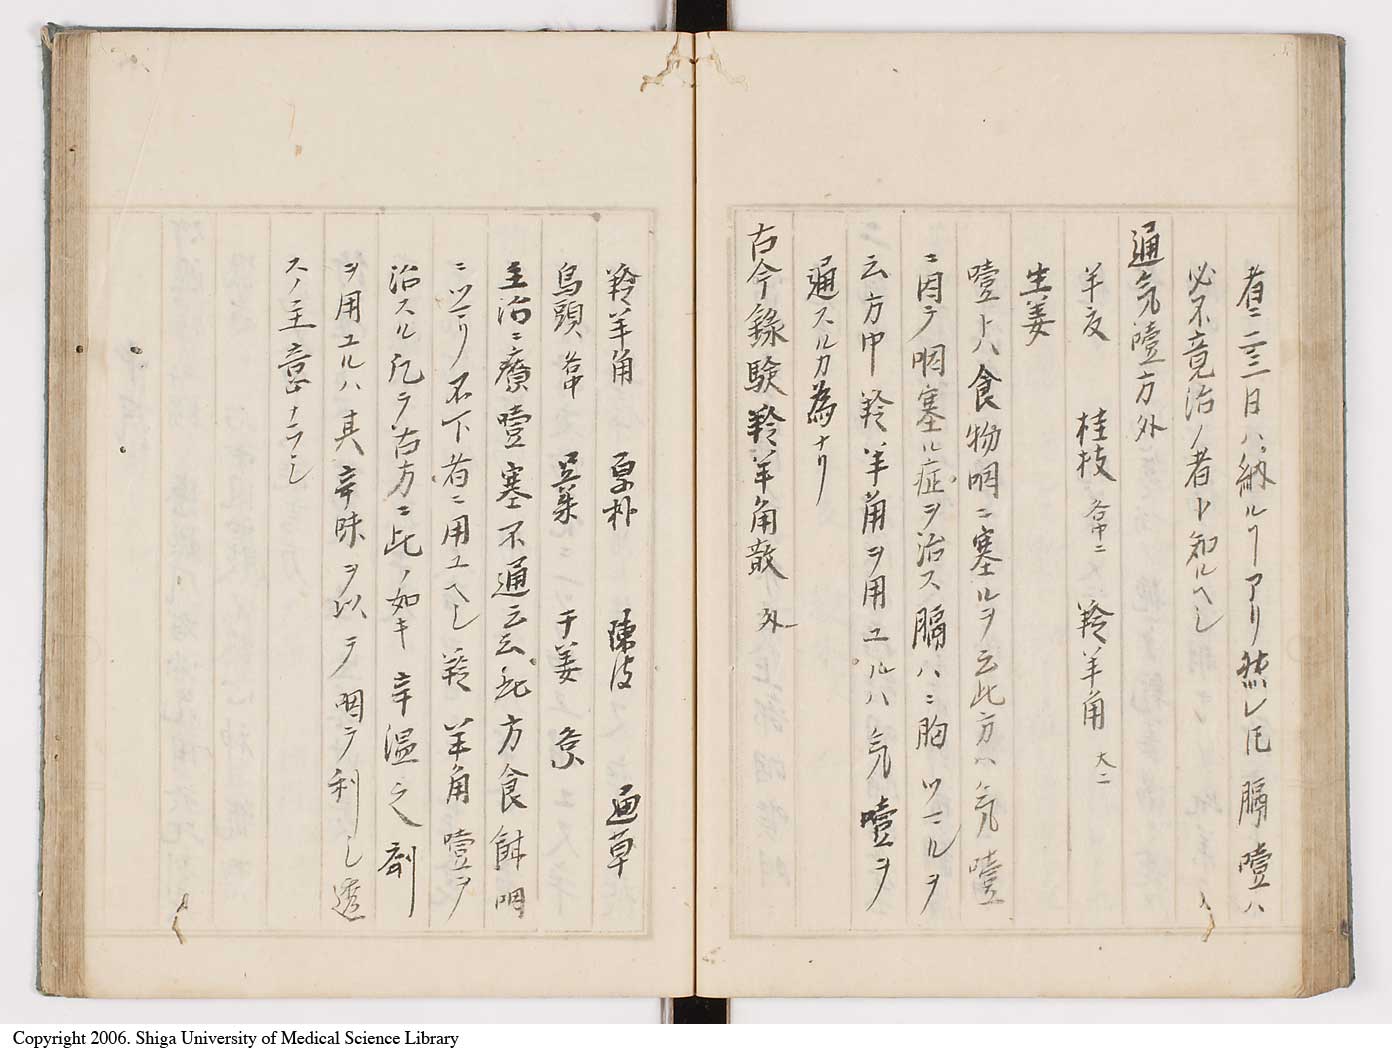 者二三日ハ納ルヿアリ然レ𪜈膈噎ハ
必不竟治ノ者ト知ルヘシ
通気噎方外
半夏 桂枝 各中二 羚羊角 大二
生姜
噎トハ食物咽ニ塞ルヲ云此方ハ気噎
ニ因テ咽塞ル症ヲ治ス膈ハニ胸ツマルヲ
云方中羚羊角ヲ用ユルハ気噎ヲ
通スルカ為ナリ
古今錄験羚羊角散 外
羚羊角 厚朴 陳皮 通草
烏頭 各中 吴茱 干姜 各小
主治ニ療噎塞不通云云此方食餅咽
ニツマリ不下者ニ用ユヘシ羚羊角噎ヲ
治スル凡テ古方ニ此ノ如キ辛温之剤
ヲ用ユルハ其辛味ヲ以テ咽ヲ利シ透
スノ主意ナラシ
Copyright 2006. Shiga University of Medical Science Library